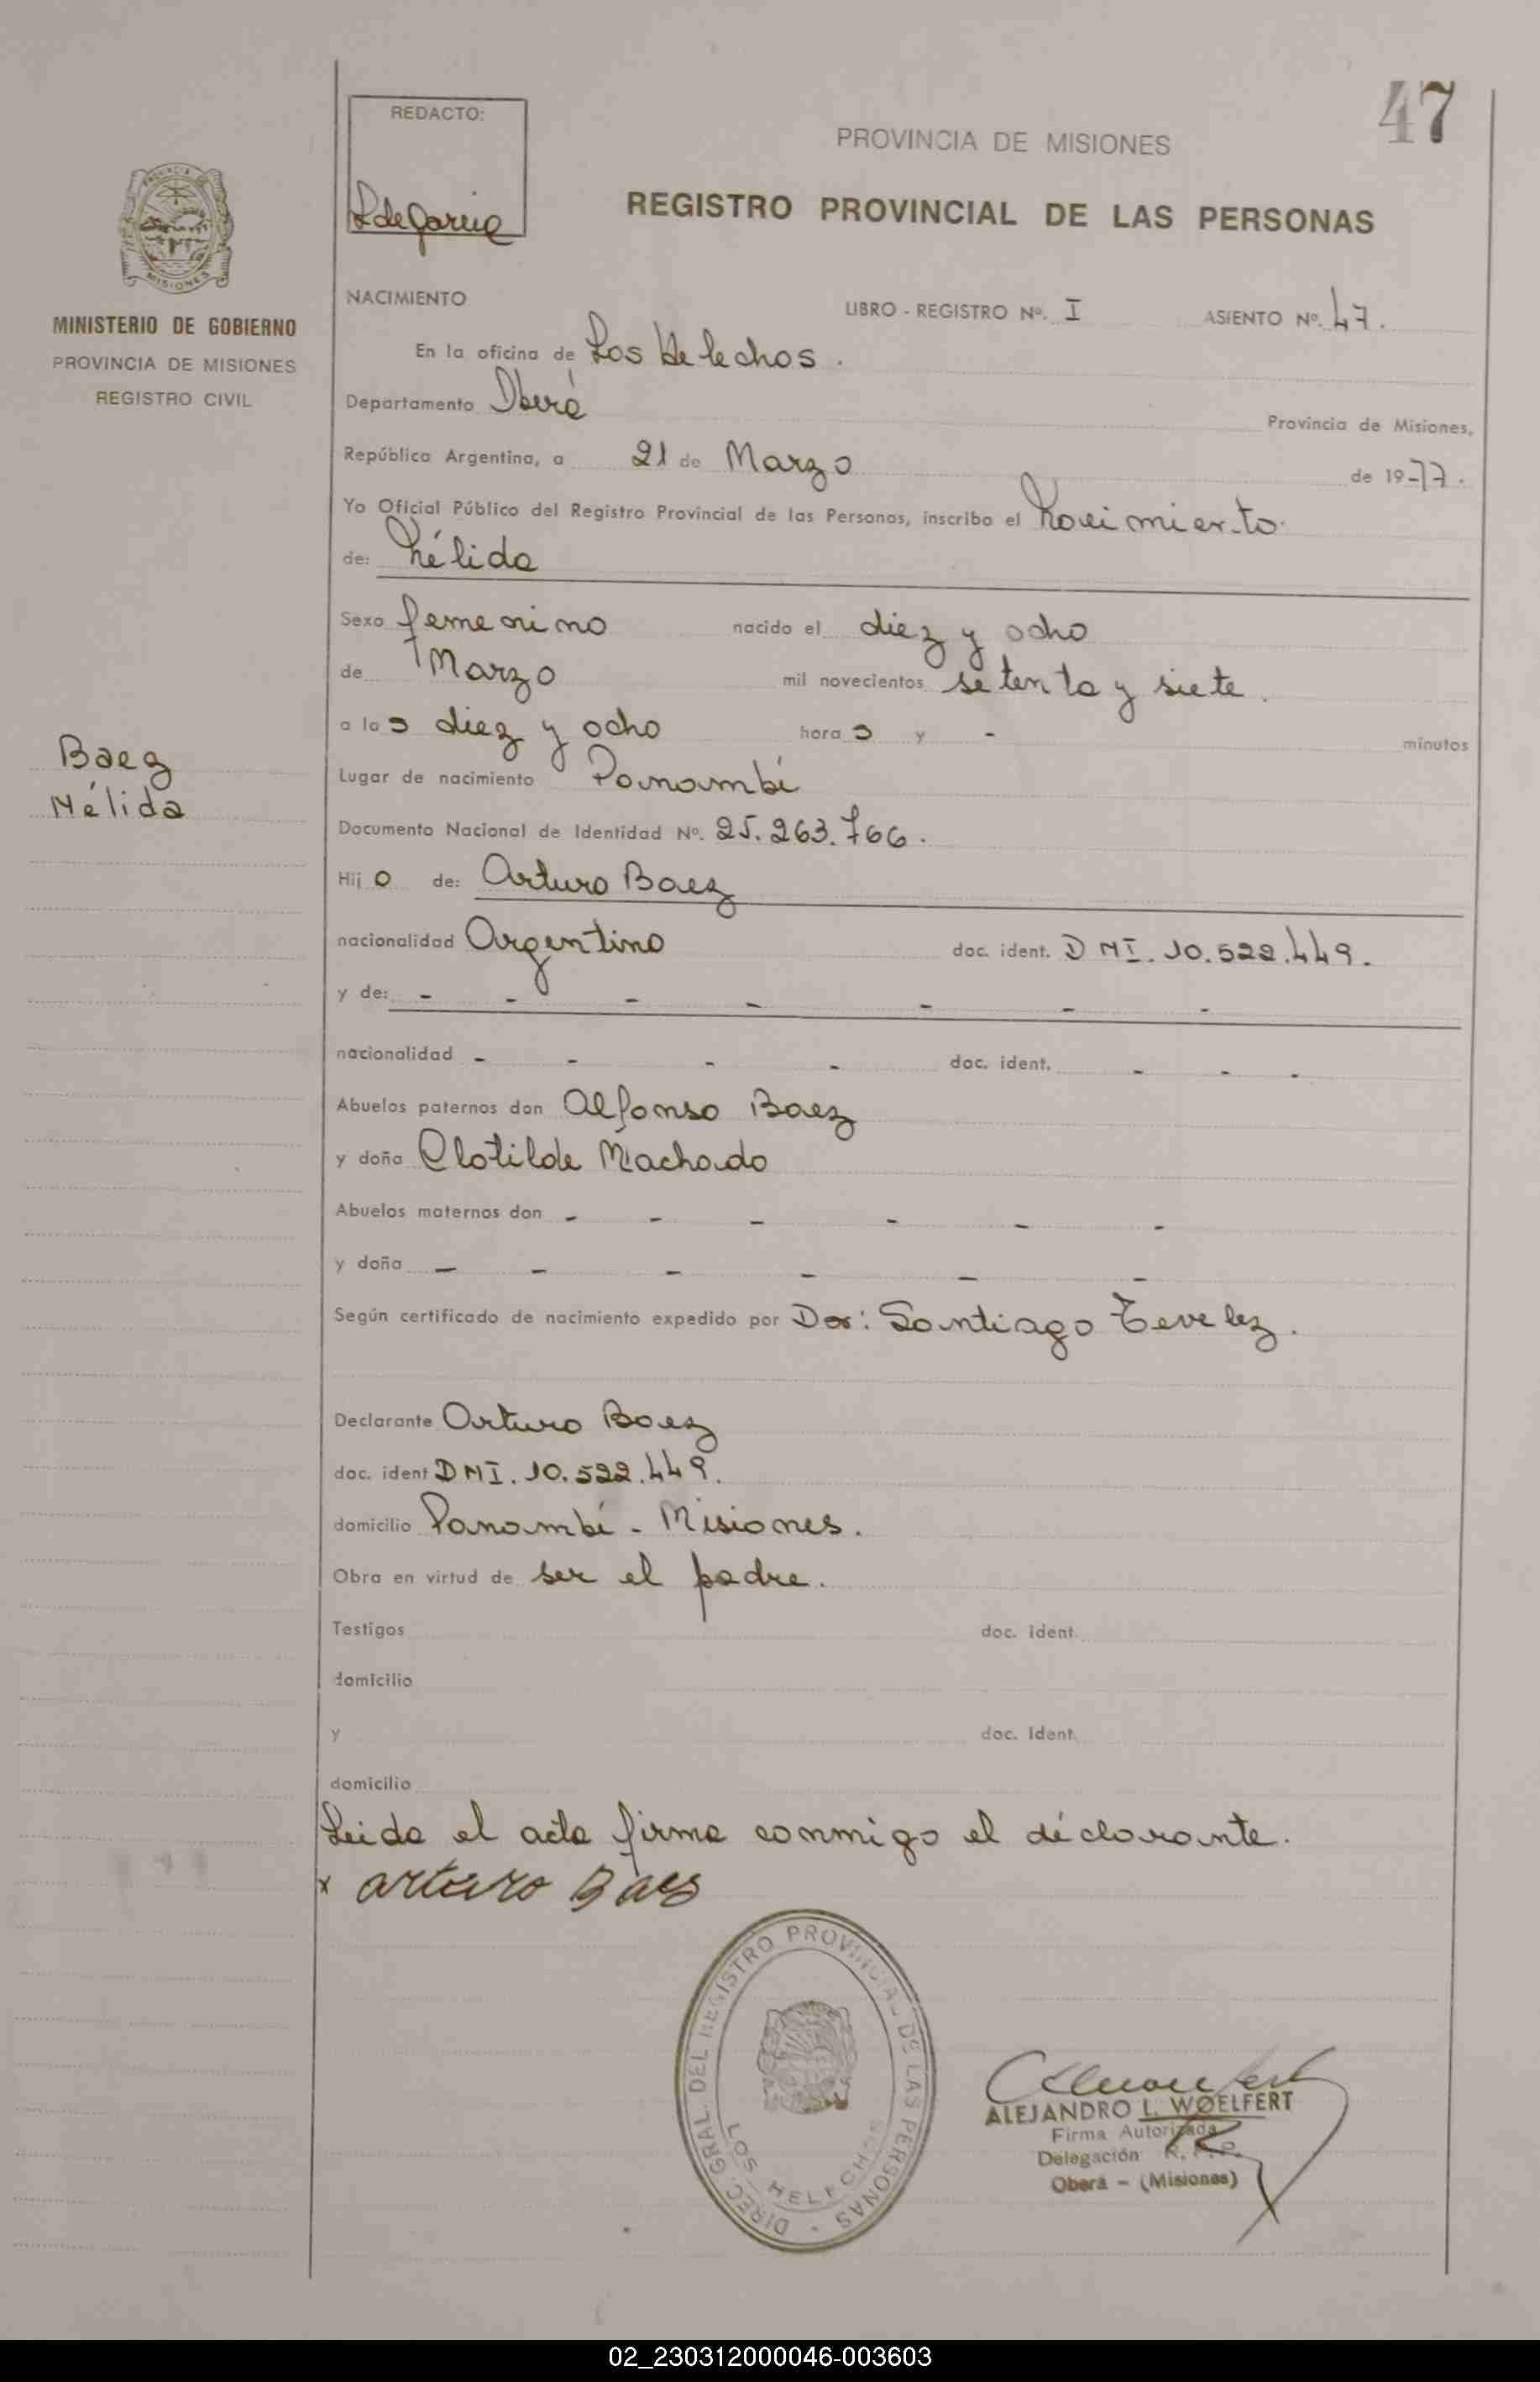 47
REDACTO:
PROVINCIA DE MISIONES
REGISTRO PROVINCIAL DE LAS PERSONAS
MISIONES
MINISTERIO DE GOBIERNO
PROVINCIA DE MISIONES
REGISTRO CIVIL
NACIMIENTO LIBRO - REGISTRO Nº. I ASIENTO Nº. 47.
En la oficina de Los Helechos.
Departamento Oberá Provincia de Misiones,
República Argentina, a 21 de Marzo de 1977.
Yo Oficial Público del Registro Provincial de las Personas, inscribo el Nacimiento
de: Nélida
Sexo femenino nacido el diez y ocho
de Marzo mil novecientos setenta y siete.
a las diez y ocho horas y - minutos
Baez
Nélida
Lugar de nacimiento Panambí
Documento Nacional de Identidad Nº. 25.263.766.
Hija de: Arturo Baez
nacionalidad Argentina doc. ident. DNI. 10.522.449.
y de: - - - - - - -
nacionalidad - - - - doc. ident. - - -
Abuelos paternos don Alfonso Baez
y doña Clotilde Machado
Abuelos maternos don - - - - - -
y doña - - - - - -
Según certificado de nacimiento expedido por Dor: Santiago Tevelez.
Declarante Arturo Baez
doc. ident DNI. 10.522.449.
domicilio Panambí - Misiones.
Obra en virtud de ser el padre.
Testigos doc. ident.
domicilio
y doc. Ident.
domicilio
Leida el acta firma conmigo el déclarante.
x arturo Baes
DIREC. GRAL. DEL REGISTRO PROVINCIAL DE LAS PERSONAS -
LOS HELECHOS
ALEJANDRO L. WOELFERT
Firma Autorizada
Delegación R.P.P.
Oberá - (Misiones)
02_230312000046-003603